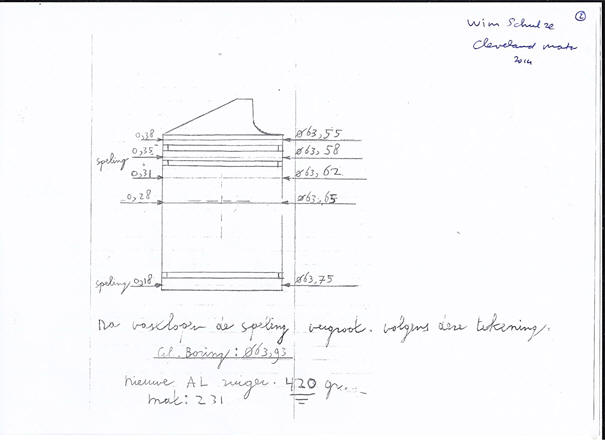 ②
Wim Schulze
Cleveland motor
2014
0,38 Ø63,55
0,35 Ø63,58
speling
0,31 Ø63,62
0,28 Ø63,65
speling 0,18 Ø63,75
Na vastlopen de speling vergroot. volgens deze tekening.
Cil. Boring: Ø63,93
nieuwe AL zuiger. 420 gr.
mat: 231